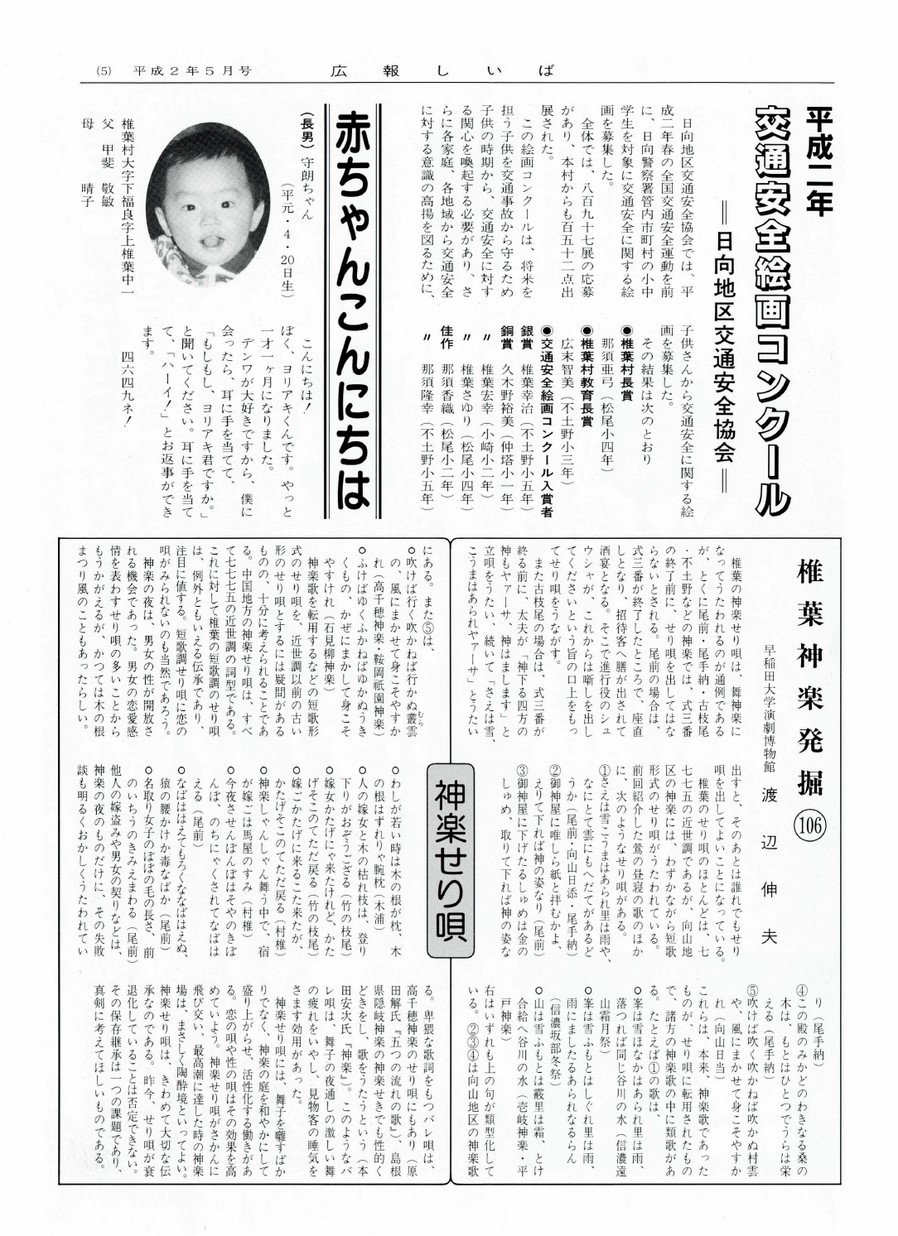 (5) 平成2年5月号
広報しいば
平成二年
交通安全絵画コンクール
＝日向地区交通安全協会＝
日向地区交通安全協会では、平
成二年春の全国交通安全運動を前
に、日向警察署管内市町村の小中
学生を対象に交通安全に関する絵
画を募集した。
全体では、八百九十七展の応募
があり、本村からも百五十二点出
展された。
この絵画コンクールは、将来を
担う子供を交通事故から守るため
子供の時期から、交通安全に対す
る関心を喚起する必要があり、さ
らに各家庭、各地域から交通安全
に対する意識の高揚を図るために、
子供さんから交通安全に関する絵
画を募集した。
その結果は次のとおり
●椎葉村長賞
那須亜弓（松尾小四年）
●椎葉村教育長賞
広末智美（不土野小三年）
●交通安全絵画コンクール入賞者
銀賞 椎葉幸治（不土野小五年）
銅賞 久木野裕美（仲塔小一年）
〃 椎葉宏幸（小崎小二年）
〃 椎葉さゆり（松尾小四年）
佳作 那須香織（松尾小二年）
〃 那須隆幸（不土野小五年）
赤ちゃんこんにちは
（長男）守朗ちゃん
（平元・4・20日生）
椎葉村大字下福良字上椎葉中一
父 甲斐 敬敏
母 晴子
こんにちは！
ぼく、ヨリアキくんです。やっと
一才一ヶ月になりました。
デンワが大好きですから、僕に
会ったら、耳に手を当てて、
「もしもし、ヨリアキ君ですか。」
と聞いてください。耳に手を当て
て、「ハーイ！」とお返事ができ
ます。
四六四九ネ！
椎葉神楽発掘 106
早稲田大学演劇博物館 渡辺伸夫
神楽せり唄
椎葉の神楽せり唄は、舞神楽に
なってうたわれるのが通例である
が、とくに尾前・尾手納・古枝尾
・不土野などの神楽では、式三番
の終了前に、せり唄を出してはな
らないとされる。尾前の場合は、
式三番が終了したところで、座直
しとなり、招待客へ膳が出されて
酒宴となる。そこで進行役のシュ
ウシャが、これからは囃しを出し
てくださいという旨の口上をもっ
てせり唄をうながす。
また古枝尾の場合は、式三番が
終る前に、太夫が「神下る四方の
神もヤァーサ、神はまします」と
立唄をうたい、続いて「さえは雪、
こうまはあられヤァーサ」とうたい
出すと、そのあとは誰れでもせり
唄を出してよいことになっている。
椎葉のせり唄のほとんどは、七
七七五の近世調であるが、向山地
区の神楽には、わずかながら短歌
形式のせり唄がうたわれている。
前回紹介した鶯の昼寝の歌のほか
に、次のようなせり唄がある。
①さえは雪こうまはあられ里は雨や、
なにとて雲にもへだてがあるど
うか（尾前・向山日添・尾手納）
②御神屋に唯しら紙と拝むかよ、
えりて下れば神の姿なり（尾前）
③御神屋に下げたるしゅめは金の
しゅめ、取りて下れば神の姿な
り（尾手納）
④この殿のみかどのわきなる桑の
木は、もとはひとつでうらは栄
える（尾手納）
⑤吹けば吹く吹かねば吹かぬ村雲
や、風にまかせて身こそやすか
れ（向山日当）
これらは、本来、神楽歌であった
ものが、せり唄に転用されたもの
で、諸方の神楽歌の中に類歌があ
る。たとえば①の歌は、
○峯は雪ほなかはあられ里は雨、
落つれば同じ谷川の水（信濃遠
山霜月祭）
○峯は雪ふもとはしぐれ里は雨、
雨にましたるあられなるらん
（信濃坂部冬祭）
○山は雪ふもとは霰里は霜、とけ
合給へ谷川の水（壱岐神楽・平
戸神楽）
右はいずれも上の句が類型化して
いる。②③④は向山地区の神楽歌
にある。また⑤は、
○吹けば行く吹かねば行かぬ叢雲
むら
の、風にまかせて身こそやすか
れ（高千穂神楽・鞍岡祇園神楽）
○ふけばゆくふかねばゆかぬうき
くもの、かぜにまかして身こそ
やすけれ（石見柳神楽）
神楽歌を転用するなどの短歌形
式のせり唄を、近世調以前の古い
形のせり唄とするには疑問がある
ものの、十分に考えられることであ
る。中国地方の神楽せり唄は、すべ
て七七七五の近世調の詞型である。
これに対して椎葉の短歌調のせり唄
は、例外ともいえる伝承であり、
注目に値する。短歌調せり唄に恋の
唄がみられないのも当然であろう。
神楽の夜は、男女の性が開放さ
れる機会であった。男女の恋愛感
情を表わすせり唄の多いことから
もうかがえるが、かつては木の根
まつり風のこともあったらしい。
○わしが若い時は木の根が枕、木
の根はずれりゃ腕枕（木浦）
○人の嫁女と木の枯れ枝は、登り
下りがおぞうござる（竹の枝尾）
○嫁女かたげにゃ来たけれど、かた
げそこのてただ戻る（竹の枝尾）
○嫁ごかたげに来るこた来たが、
かたげそこのてただ戻る（村椎）
○神楽しゃんしゃん舞う中で、宿
が嫁ごは馬屋のすみ（村椎）
○今夜させんぼんばはそやのきば
んば、のちにゃくされてなばは
える（尾前）
○なばははえてもろくななばはえぬ、
猿の腰かけか毒なばか（尾前）
○名取り女子のぼぼの毛の長さ、前
のいちうのきみえまわる（尾前）
他人の嫁盗みや男女の契りなどは、
神楽の夜のものだけに、その失敗
談も明るくおかしくうたわれてい
る。卑猥な歌詞をもつバレ唄は、
高千穂神楽のせり唄にもあり（原
田解氏『五つの流れの歌』）、島根
県隠岐神楽の神楽せきでも性的く
どきをし、歌をうたうという（本
田安次氏『神楽』）。このようなバ
レ唄は、舞子の夜通しの激しい舞
の疲れをいやし、見物客の睡気を
さます効用があった。
神楽せり唄には、舞子を囃すばか
りでなく、神楽の庭を和やかにして
盛り上がらせ、活性化する働きがあ
る。恋の唄や性の唄はその効果を高
めていよう。神楽せり唄がさかんに
飛び交い、最高潮に達した時の神楽
場は、まさしく陶酔境といってよい。
神楽せり唄は、きわめて大切な伝
承なのである。昨今、せり唄が衰
退化していることは否定できない。
その保存継承は一つの課題であり、
真剣に考えてほしいものである。